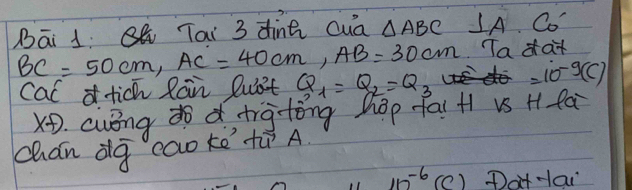 Bài 1: Tại 3 đỉnh của ΔABC ⊥A. Có
BC = 50cm, AC = 40cm, AB = 30cm. Ta đặt
các đ tích lần lượt Q₁ = Q₂ = Q₃ = 10⁻⁹(C)
XĐ. cường độ đ trg tổng hợp tại H vs H là
chân đg cao kẻ từ A.
10⁻⁶ (C) Đặt tại